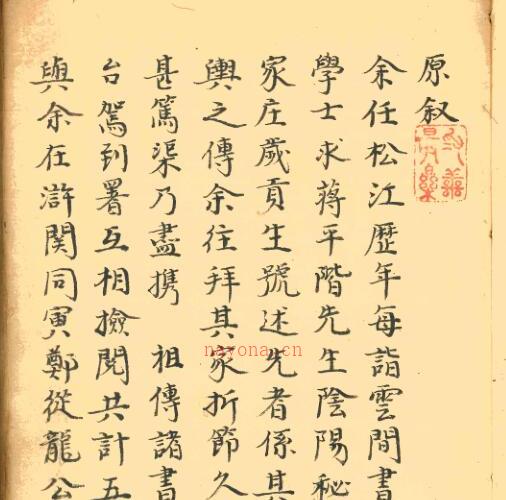 原叙
余任松江歷年每詣雲間書
學士求蔣平階先生陰陽秘
家庄歲貢生號述先者係其
輿之傳余往拜其家折節久
甚篤渠乃盡携 祖傳諸書
台駕到署互相撿閱共計五
與余在滸関同寅鄭從龍公
nayona.cn